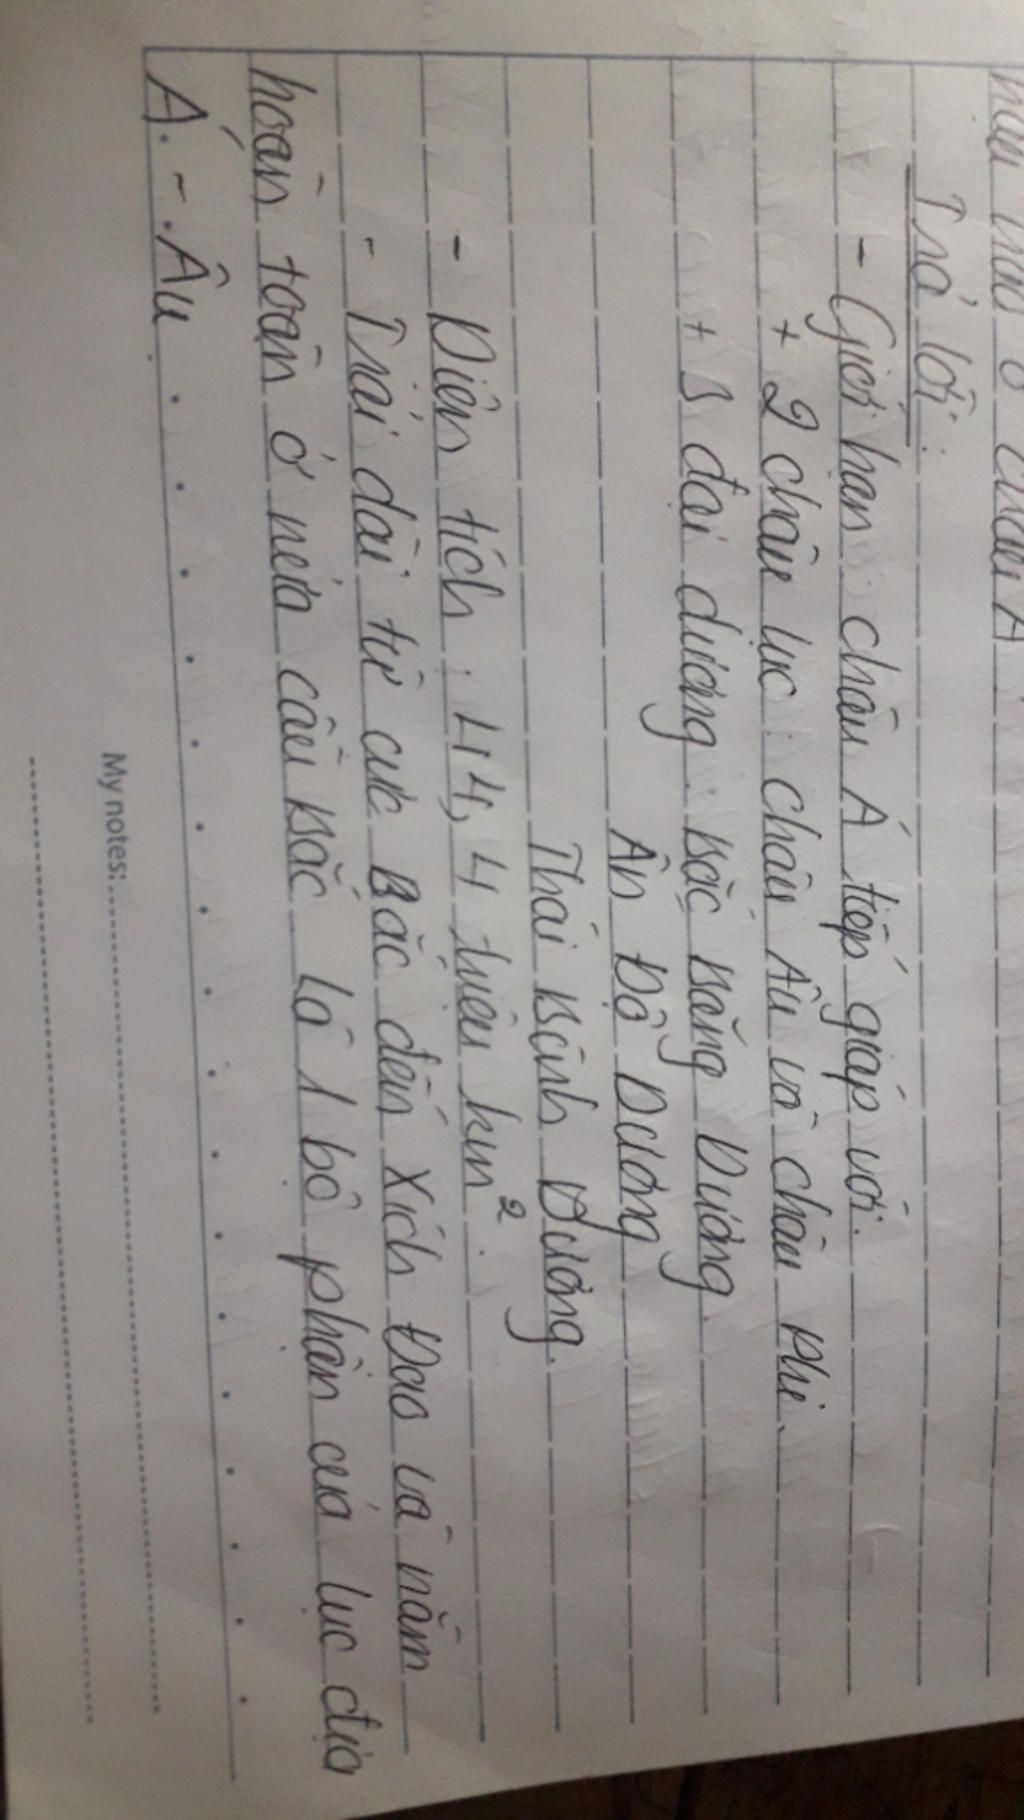 Trả lời:
- Giới hạn: châu Á tiếp giáp với:
+ 2 châu lục: châu Âu và châu Phi.
+ 3 đại dương: Bắc Băng Dương
Ấn Độ Dương
Thái Bình Dương.
- Diện tích: 44,4 triệu km².
- Trải dài từ cực Bắc đến Xích Đạo và nằm
hoàn toàn ở nửa cầu Bắc là 1 bộ phận của lục địa
Á - Âu
My notes: